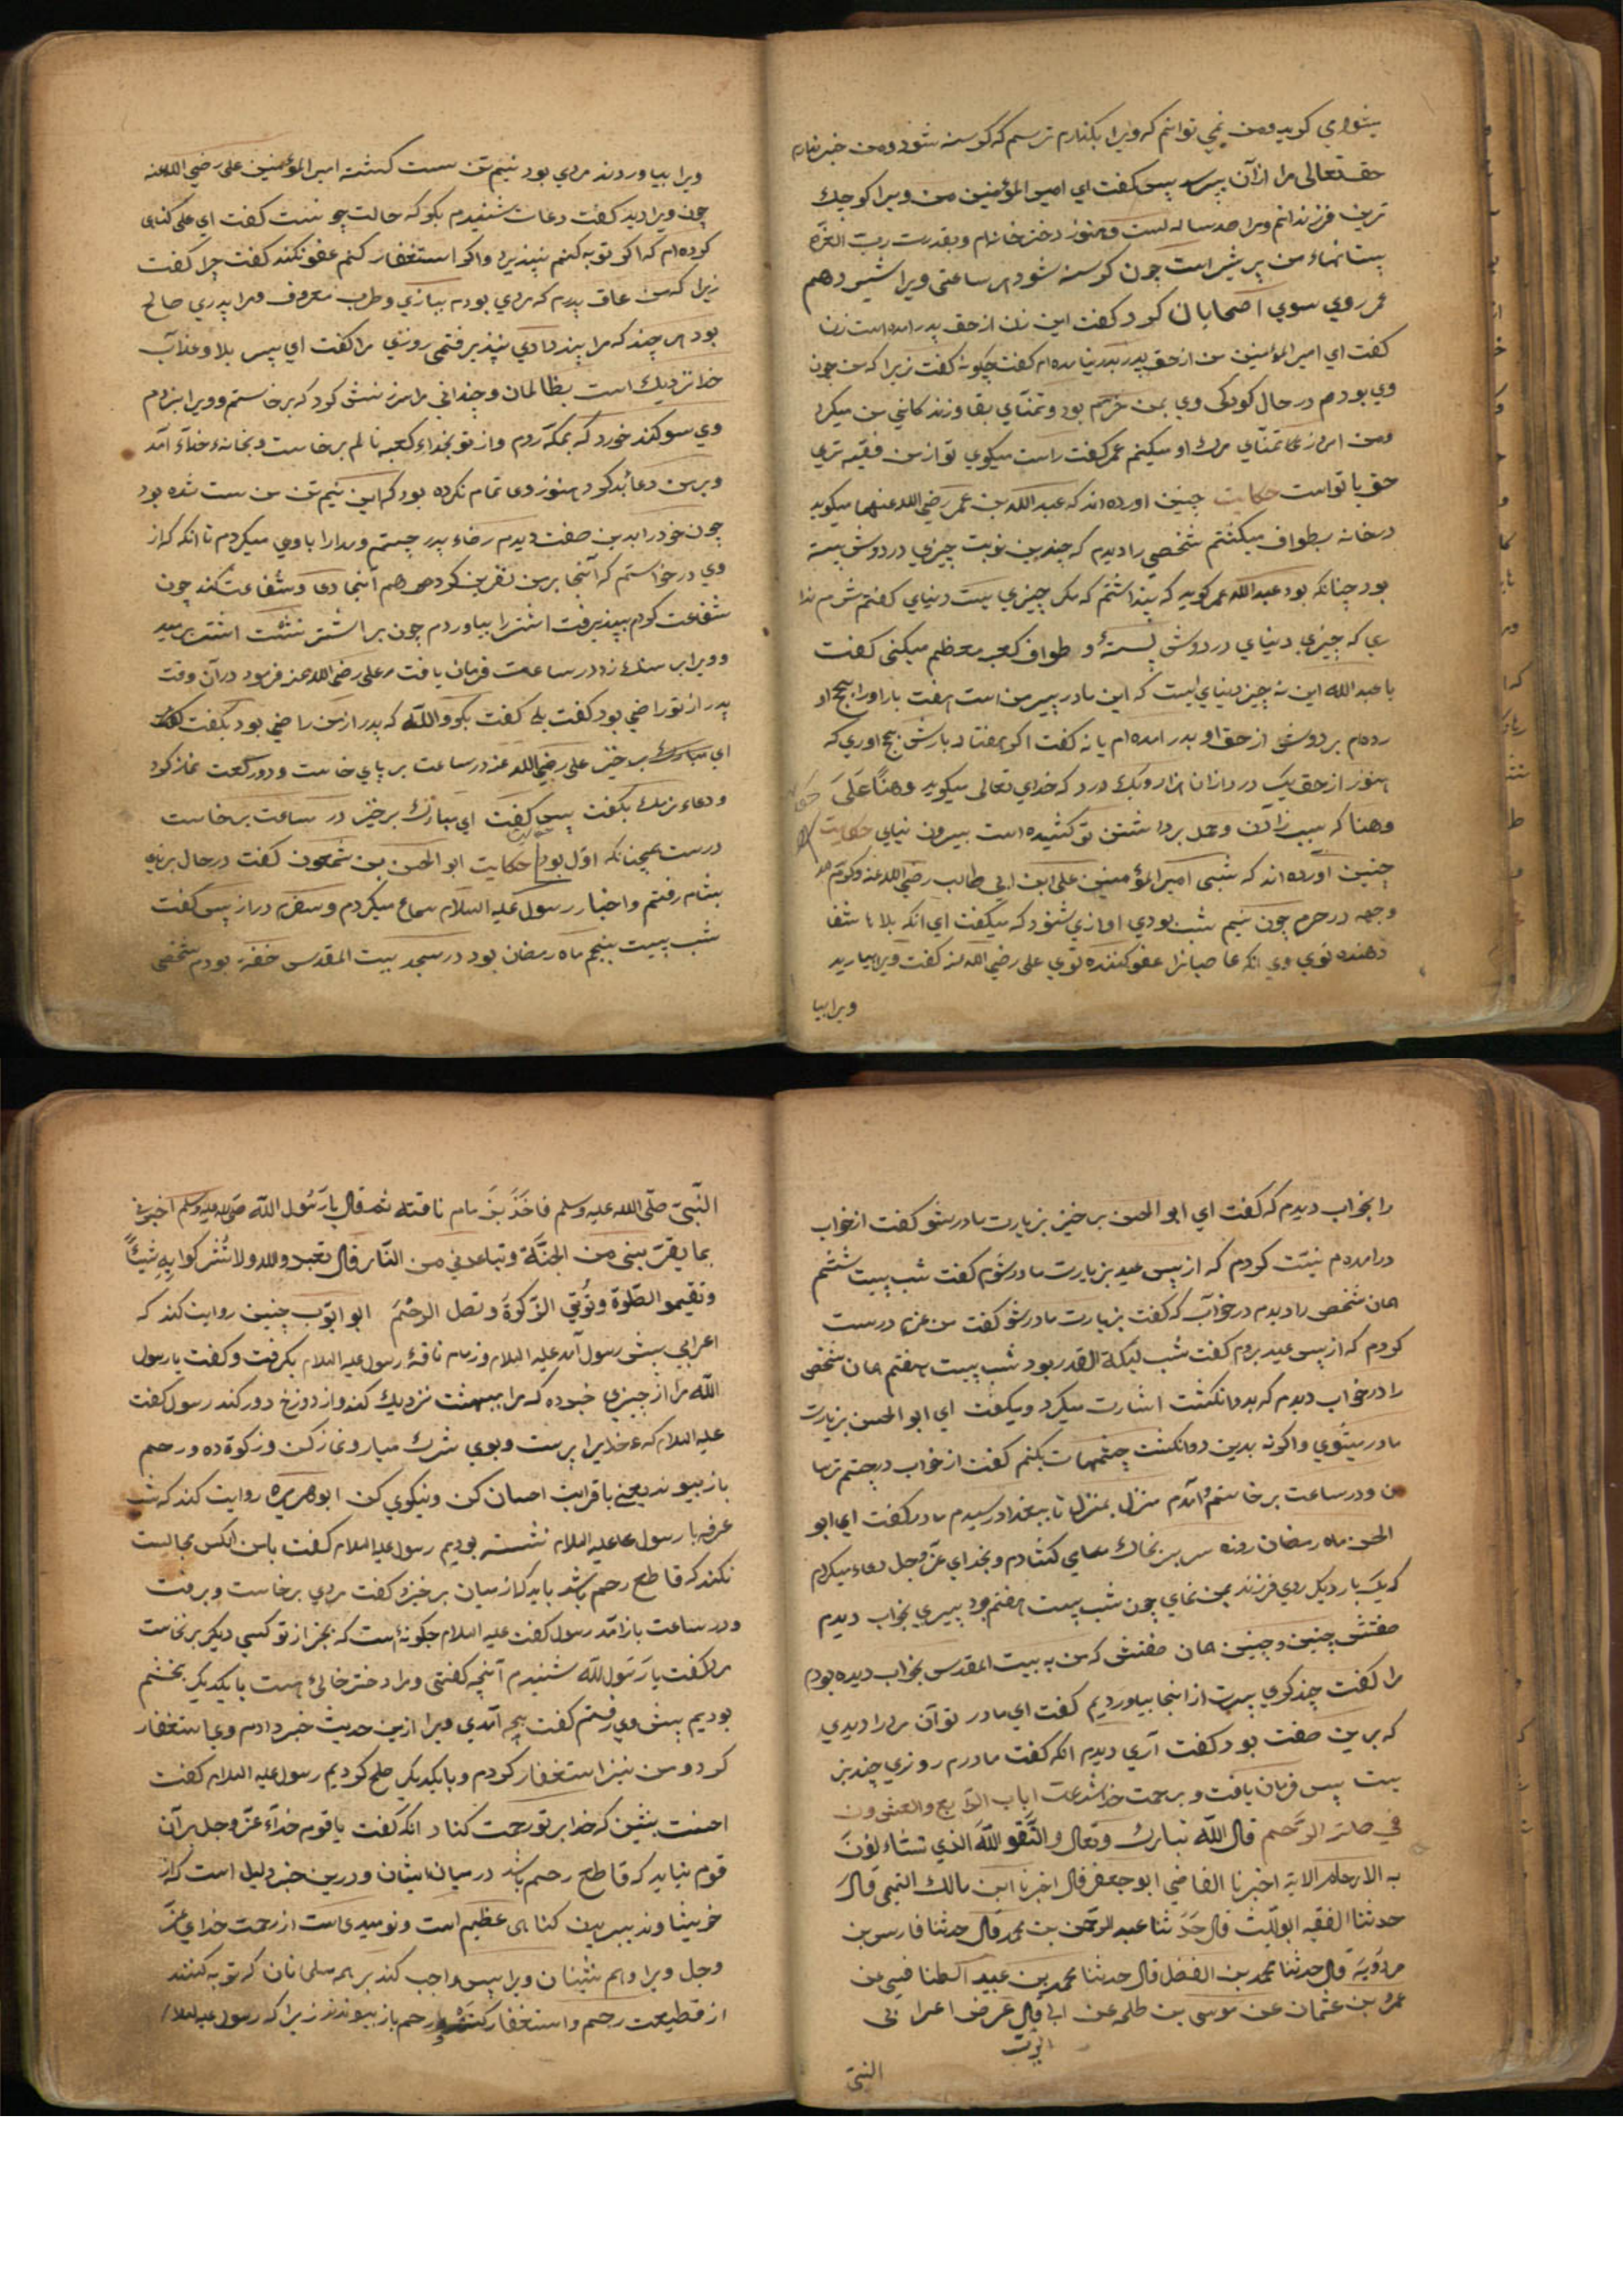 میشوامي كويد ومن نمي توانم كه ويرا بكذارم ترسم كه كرسنه شود ومن خبر ندارم
حق تعالى مرا از ان پرسد پس كفت اي امير المؤمنين من ويرا كوچك
ترين فرزندانم ومرا صد ساله است وهنوز دختر خانه ام وبقدرت رب العزه
پستانهاء من پر شير است چون كرسنه شود هر ساعتى ويرا شير دهم
عمر روي سوي اصحابان كرد كفت اين زن از حق پدر امده است زن
كفت اي امير المؤمنين من از حق پدر بدر نيامده ام كفت چكونه كفت زيرا كه من چون
وي بودم در حال كودكى وي بمن خرم بود وتمناي بقا وزندكاني من ميكرد
ومن امروز تمناي مرك او ميكنم عمر كفت راست ميكوي تو از من فقيه تري
حق با تواست حكايت چنين اورده اند كه عبد الله بن عمر رضي الله عنهما ميكويد
در خانه بطواف ميكشتم شخصي را ديدم كه چندين نوبت چيزي در دوش بسته
بود چنانكه بود عبد الله عمر كويد كه پنداشتم كه مكر چيزي است دنياي كفتم شرم ندا
ري كه چيزي دنياي در دوش بسته و طواف كعبه معظم ميكني كفت
يا عبد الله اين نه چيز دنياي است كه اين مادر پير من است هفت بار اورا بحج او
رده ام بر دوش از حق او بدر امده ام يا نه كفت اكر هفتاد بارش بحج اوري كه
هنوز از حق يك درد از ان هزار ويك درد كه خداي تعالى ميكويد وهنًا عَلَى
وهنا كه بسبب زادن وحمل برداشتن تو كشيده است بيرون نيايي حكايت
چنين آورده اند كه شبى امير المؤمنين على ابن ابي طالب رضي الله عنه وكرم الله
وجهه در حرم چون نيم شب بودي اوازي شنود كه ميكفت اي انكه بلا را شفا
دهنده توي وي انكه عاصيانرا عفو كننده توي على رضي الله عنه كفت ويرا بياريد
ويرا بيا
ويرا بياوردند مردي بود نيم تن سست كشته امير المؤمنين على رضي الله عنه
چون ويرا ديد كفت دعات شنيدم بكو كه حالت چونست كفت اي على كناهى
كرده ام كه اكر توبه كنم نپذيرد واكر استغفار كنم عفو نكند كفت چرا كفت
زيرا كه من عاق پدرم كه مردي بودم ببازي وطرب معروف ومرا پدري صالح
بود هر چند كه مرا پند دادي نپذيرفتمى روزي مرا كفت اي پسر بلا وعذاب
خدا نزديك است بظالمان وچنداني مرا سرزنش كرد كه برخاستم وويرا بزدم
وي سوكند خورد كه بمكه روم واز تو بخداء كعبه نالم برخاست وبخانهء خداء آمد
وبر من دعا بد كرد هنوز دعا تمام نكرده بود كه اين نيم تن من سست شده بود
چون خود را بدين صفت ديدم رضاء پدر جستم ومدارا باوي ميكردم تا انكه كه از
وي درخواستم كه آنجا بر من نفرين كرد هم آنجا دعا وشفاعت كند چون
شفاعت كردم بپذيرفت اشتر را بياوردم چون بر اشتر نشست اشتر برميد
وويرا بر سنك زد در ساعت فرمان يافت على رضي الله عنه فرمود در آن وقت
پدر از تو راضي بود كفت بلى كفت بكو والله كه پدر از من راضي بود بكفت
اي مبارك برخيز على رضي الله عنه در ساعت بر پاي خاست ودو ركعت نماز كرد
ودعاء نرمك بكفت پس كفت اي مبارك برخيز در ساعت برخاست
درست همچنانكه اول بود حكايت ابو الحسن بن شمعون كفت در حال برنايي
بشام رفتم واخبار رسول عليه السلام سماع ميكردم وسفرم دراز پس كفت
شب بيست پنجم ماه رمضان بود در مسجد بيت المقدس خفته بودم شخصى
را بخواب ديدم كه كفت اي ابو الحسن برخيز بزيارت مادر شو كفت از خواب
درامدم نيت كردم كه از پس عيد بزيارت مادر شوم كفت شب بيست ششم
همان شخص را ديدم در خواب كه كفت بزيارت مادر شو كفت من عزم درست
كردم كه از پس عيد بروم كفت شب ليلة القدر بود شب بيست هفتم همان شخص
را در خواب ديدم كه بدو انكشت اشارت ميكرد وميكفت اي ابو الحسن بزيارت
مادر ميشوي واكر نه بدين دو انكشت چشمهات بكنم كفت از خواب درجستم ترسا
ن ودر ساعت برخاستم وآمدم منزل بمنزل تا ببغداد رسيدم مادر كفت اي ابو
الحسن ماه رمضان روزه سر بر نمك سماي كشادم وبخداي عز وجل دعاء ميكردم
كه يك بار ديكر روي فرزند بمن نماي چون شب بيست هفتم بود پيري بخواب ديدم
صفتش چنين وچنين همان صفتش كه من به بيت المقدس بخواب ديده بودم
مرا كفت چند كوي پسرت از انجا بياورديم كفت اي مادر تو آن مرد را ديدي
كه برين صفت بود كفت آري ديدم انكه كفت مادرم روزي چند بز
يست پس فرمان يافت وبرحمت خدا شد باب الرابع والعشرون
في صلة الرحم قال الله تبارك وتعالى واتقو الله الذي تساءلون
به الارحام الاية اخبرنا القاضي ابو جعفر قال اخبرنا ابن مالك التيمي قال
حدثنا الفقيه ابو الليث قال حدثنا عبد الرحمن بن محمد قال حدثنا فارس بن
مردويه قال حدثنا محمد بن الفضل قال حدثنا محمد بن عبيد الطنافسي عن
عمر بن عثمان عن موسى بن طلحه عن ابي قال عرض اعرابى
ايوب
النبي
النَّبي صلّى الله عليه وسلم فاخذ بزمام ناقته ثم قال يا رسول الله صلى الله عليه وسلم اخبرني
بما يقربني من الجنّة ويباعدني من النّار قال تعبد والله ولا تشركوا به شيئًا
وتقيموا الصّلوة وتؤتي الزّكوة وتصل الرحم ابو ايوب چنين روايت كند كه
اعرابي پيش رسول آمد عليه السلام وزمام ناقهٔ رسول عليه السلام بكرفت وكفت يا رسول
الله مرا از چيزي خبر ده كه مرا ببهشت نزديك كند واز دوزخ دور كند رسول كفت
عليه السلام كه خدايرا پرست وبوي شرك ميار ونماز كن وزكوة ده ورحم
باز پيوند يعنى با قرابت احسان كن ونيكوي كن ابو هريره روايت كند كه شب
عرفه با رسول عليه السلام نشسته بوديم رسول عليه السلام كفت با من انكس مجالست
نكند كه قاطع رحم باشد بايد كه از ميان برخيزد كفت مردي برخاست وبرفت
ودر ساعت باز آمد رسول كفت عليه السلام چكونه است كه بجز از تو كسي ديكر برنخاست
مرد كفت يا رسول الله شنيدم آنچه كفتى ومرا دختر خالىٔ هست با يكديكر بخشم
بوديم پيش وي رفتم كفت بچه آمدي ويرا ازين حديث خبر دادم وي استغفار
كرد ومن نيز استغفار كردم وبا يكديكر صلح كرديم رسول عليه السلام كفت
احسنت بنشين كه خدا بر تو رحمت كناد انكه كفت يا قوم خداء عز وجل بر آن
قوم نيايد كه قاطع رحم باشد در ميان ايشان ودرين خبر دليل است كه از
خويشاوند ببريدن كناهى عظيم است ونوميدى است از رحمت خداي عز
وجل ويرا وهم نشينان ويرا پس واجب كند بر همه مسلمانان كه توبه كنند
از قطيعت رحم واستغفار كنند ورحم باز پيوندند زيرا كه رسول عليه السلام